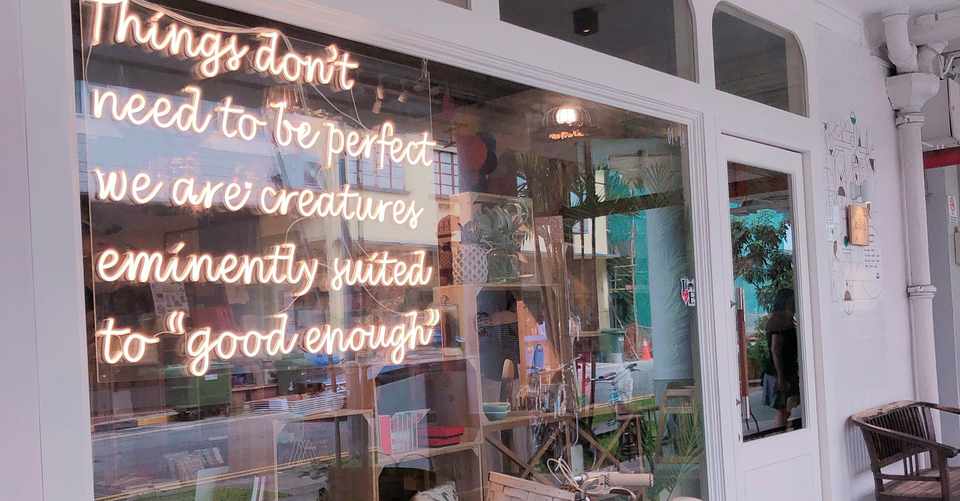 Things don't
need to be perfect
we are creatures
eminently suited
to “good enough”